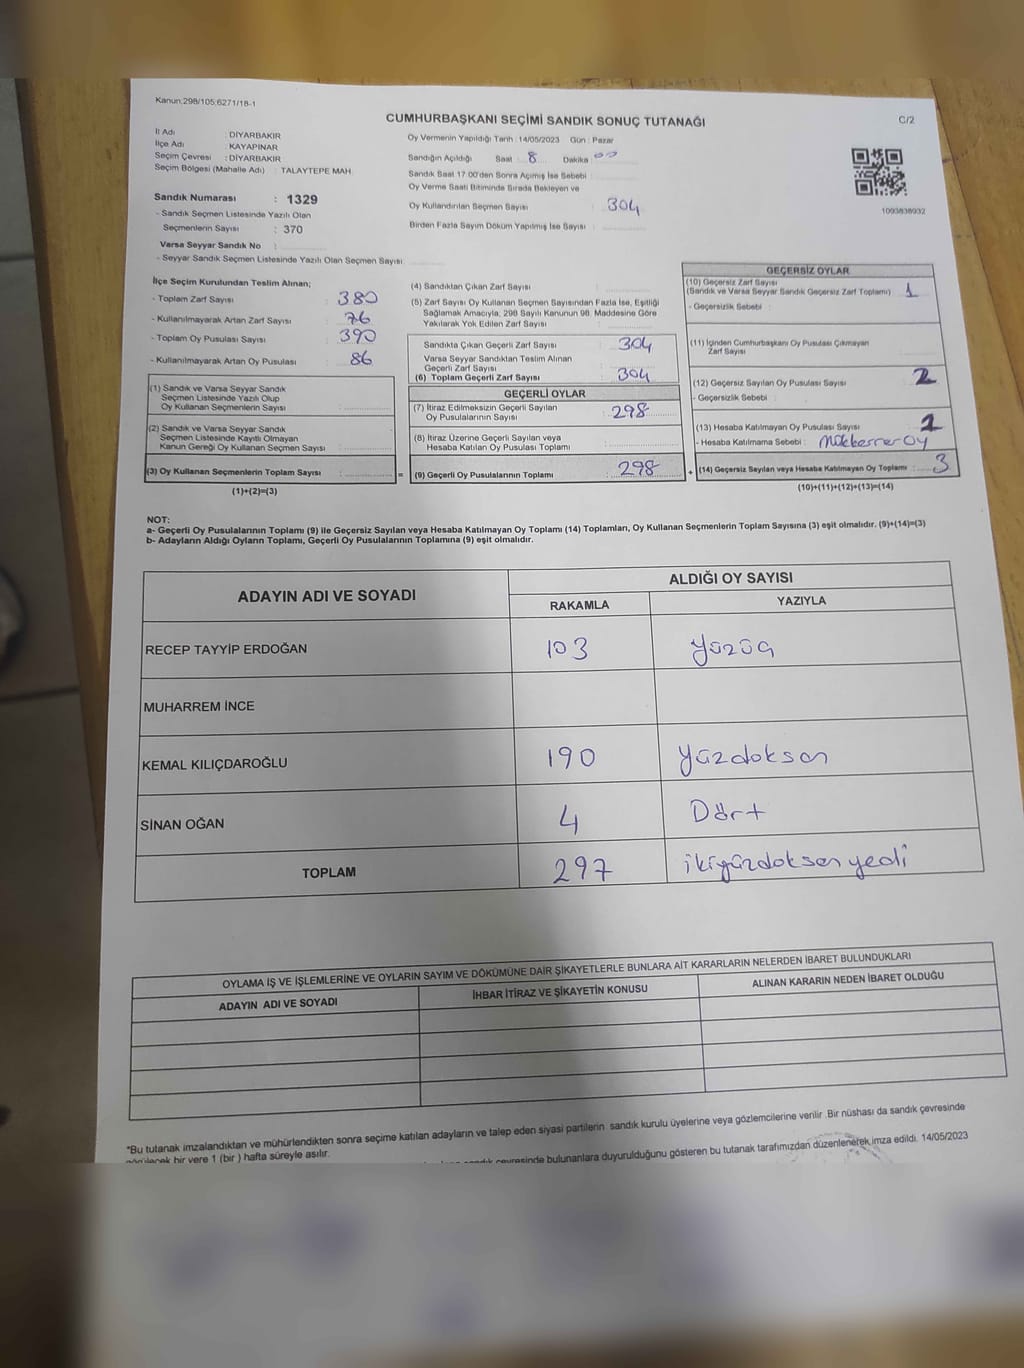 Kanun:298/105;6271/18-1
CUMHURBAŞKANI SEÇİMİ SANDIK SONUÇ TUTANAĞI
C/2
İl Adı : DİYARBAKIR
İlçe Adı : KAYAPINAR
Seçim Çevresi : DİYARBAKIR
Seçim Bölgesi (Mahalle Adı) : TALAYTEPE MAH.
Sandık Numarası : 1329
- Sandık Seçmen Listesinde Yazılı Olan
Seçmenlerin Sayısı : 370
Varsa Seyyar Sandık No :
- Seyyar Sandık Seçmen Listesinde Yazılı Olan Seçmen Sayısı:
Oy Vermenin Yapıldığı Tarih :14/05/2023 Gün : Pazar
Sandığın Açıldığı Saat : 8 Dakika : 00
Sandık Saat 17.00'den Sonra Açılmış İse Sebebi :
Oy Verme Saati Bitiminde Sırada Bekleyen ve
Oy Kullandırılan Seçmen Sayısı : 304
Birden Fazla Sayım Döküm Yapılmış İse Sayısı :
1093838932
İlçe Seçim Kurulundan Teslim Alınan;
- Toplam Zarf Sayısı : 380
- Kullanılmayarak Artan Zarf Sayısı : 76
- Toplam Oy Pusulası Sayısı : 390
- Kullanılmayarak Artan Oy Pusulası : 86
(1) Sandık ve Varsa Seyyar Sandık
Seçmen Listesinde Yazılı Olup
Oy Kullanan Seçmenlerin Sayısı :
(2) Sandık ve Varsa Seyyar Sandık
Seçmen Listesinde Kayıtlı Olmayan
Kanun Gereği Oy Kullanan Seçmen Sayısı :
(3) Oy Kullanan Seçmenlerin Toplam Sayısı :
(1)+(2)=(3)
(4) Sandıktan Çıkan Zarf Sayısı :
(5) Zarf Sayısı Oy Kullanan Seçmen Sayısından Fazla İse, Eşitliği
Sağlamak Amacıyla, 298 Sayılı Kanunun 98. Maddesine Göre
Yakılarak Yok Edilen Zarf Sayısı :
Sandıkta Çıkan Geçerli Zarf Sayısı : 304
Varsa Seyyar Sandıktan Teslim Alınan
Geçerli Zarf Sayısı :
(6) Toplam Geçerli Zarf Sayısı : 304
GEÇERLİ OYLAR
(7) İtiraz Edilmeksizin Geçerli Sayılan
Oy Pusulalarının Sayısı : 298
(8) İtiraz Üzerine Geçerli Sayılan veya
Hesaba Katılan Oy Pusulası Toplamı :
= (9) Geçerli Oy Pusulalarının Toplamı : 298
GEÇERSİZ OYLAR
(10) Geçersiz Zarf Sayısı
(Sandık ve Varsa Seyyar Sandık Geçersiz Zarf Toplamı) : 1
- Geçersizlik Sebebi :
(11) İçinden Cumhurbaşkanı Oy Pusulası Çıkmayan
Zarf Sayısı :
(12) Geçersiz Sayılan Oy Pusulası Sayısı : 2
- Geçersizlik Sebebi :
(13) Hesaba Katılmayan Oy Pusulası Sayısı :
- Hesaba Katılmama Sebebi : Mükerrer Oy
+ (14) Geçersiz Sayılan veya Hesaba Katılmayan Oy Toplamı : 3
(10)+(11)+(12)+(13)=(14)
NOT:
a- Geçerli Oy Pusulalarının Toplamı (9) ile Geçersiz Sayılan veya Hesaba Katılmayan Oy Toplamı (14) Toplamları, Oy Kullanan Seçmenlerin Toplam Sayısına (3) eşit olmalıdır. (9)+(14)=(3)
b- Adayların Aldığı Oyların Toplamı, Geçerli Oy Pusulalarının Toplamına (9) eşit olmalıdır.
ADAYIN ADI VE SOYADI
ALDIĞI OY SAYISI
RAKAMLA YAZIYLA
RECEP TAYYİP ERDOĞAN 103 Yüzüç
MUHARREM İNCE
KEMAL KILIÇDAROĞLU 190 Yüzdoksan
SİNAN OĞAN 4 Dört
TOPLAM 297 ikiyüzdoksanyedi
OYLAMA İŞ VE İŞLEMLERİNE VE OYLARIN SAYIM VE DÖKÜMÜNE DAİR ŞİKAYETLERLE BUNLARA AİT KARARLARIN NELERDEN İBARET BULUNDUKLARI
ADAYIN ADI VE SOYADI İHBAR İTİRAZ VE ŞİKAYETİN KONUSU ALINAN KARARIN NEDEN İBARET OLDUĞU
*Bu tutanak imzalandıktan ve mühürlendikten sonra seçime katılan adayların ve talep eden siyasi partilerin sandık kurulu üyelerine veya gözlemcilerine verilir. Bir nüshası da sandık çevresinde
görülecek bir yere 1 (bir ) hafta süreyle asılır.
sandık çevresinde bulunanlara duyurulduğunu gösteren bu tutanak tarafımızdan düzenlenerek imza edildi. 14/05/2023